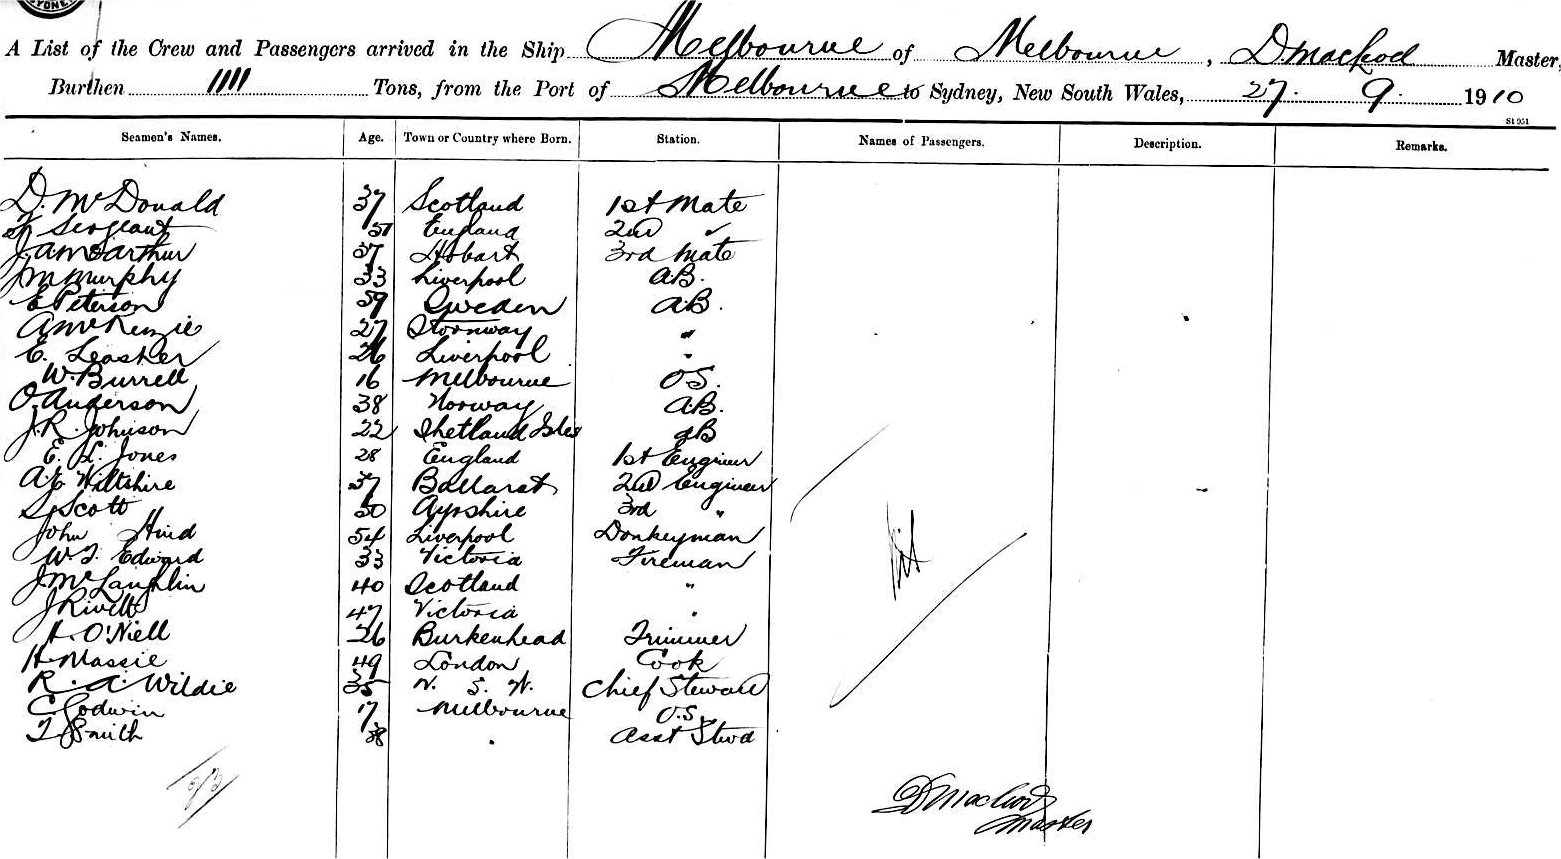 SYDNEY
A List of the Crew and Passengers arrived in the Ship Melbourne of Melbourne, D. Macleod Master,
Burthen 1111 Tons, from the Port of Melbourne to Sydney, New South Wales, 27. 9. 1910
St 951
Seamen's Names. Age. Town or Country where Born. Station. Names of Passengers. Description. Remarks.
D. McDonald 37 Scotland 1st Mate
Sergeant England 2nd "
J. A. McCarthur 37 Hobart 3rd Mate
J M Murphy 33 Liverpool A.B.
E Peterson 59 Sweden A.B.
A McKenzie 27 Stornway "
E. Leasker 26 Liverpool "
W. Burrell 16 Melbourne O.S.
O. Anderson 38 Norway A.B.
J. R. Johnson 22 Shetland Isles AB
E. L. Jones 28 England 1st Engineer
A E Wiltshire 37 Ballarat 2nd Engineer
S Scott 50 Ayrshire 3rd "
John Hind 54 Liverpool Donkeyman
W. T. Edward 33 Victoria Fireman
J McLaughlin 40 Scotland "
J Rivett 47 Victoria "
H. O'Niell 26 Burkenhead Trimmer
H. Massie 49 London Cook
R. A. Wildie 35 N. S. W. Chief Steward
C Godwin 17 Melbourne O.S.
T Smith 38 " Asst Stwd
Nil
D Macleod
Master